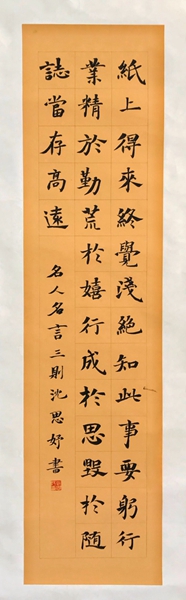 紙上得來終覺淺絕知此事要躬行
業精於勤荒於嬉行成於思毀於隨
誌當存高遠
名人名言三則沈思妤書